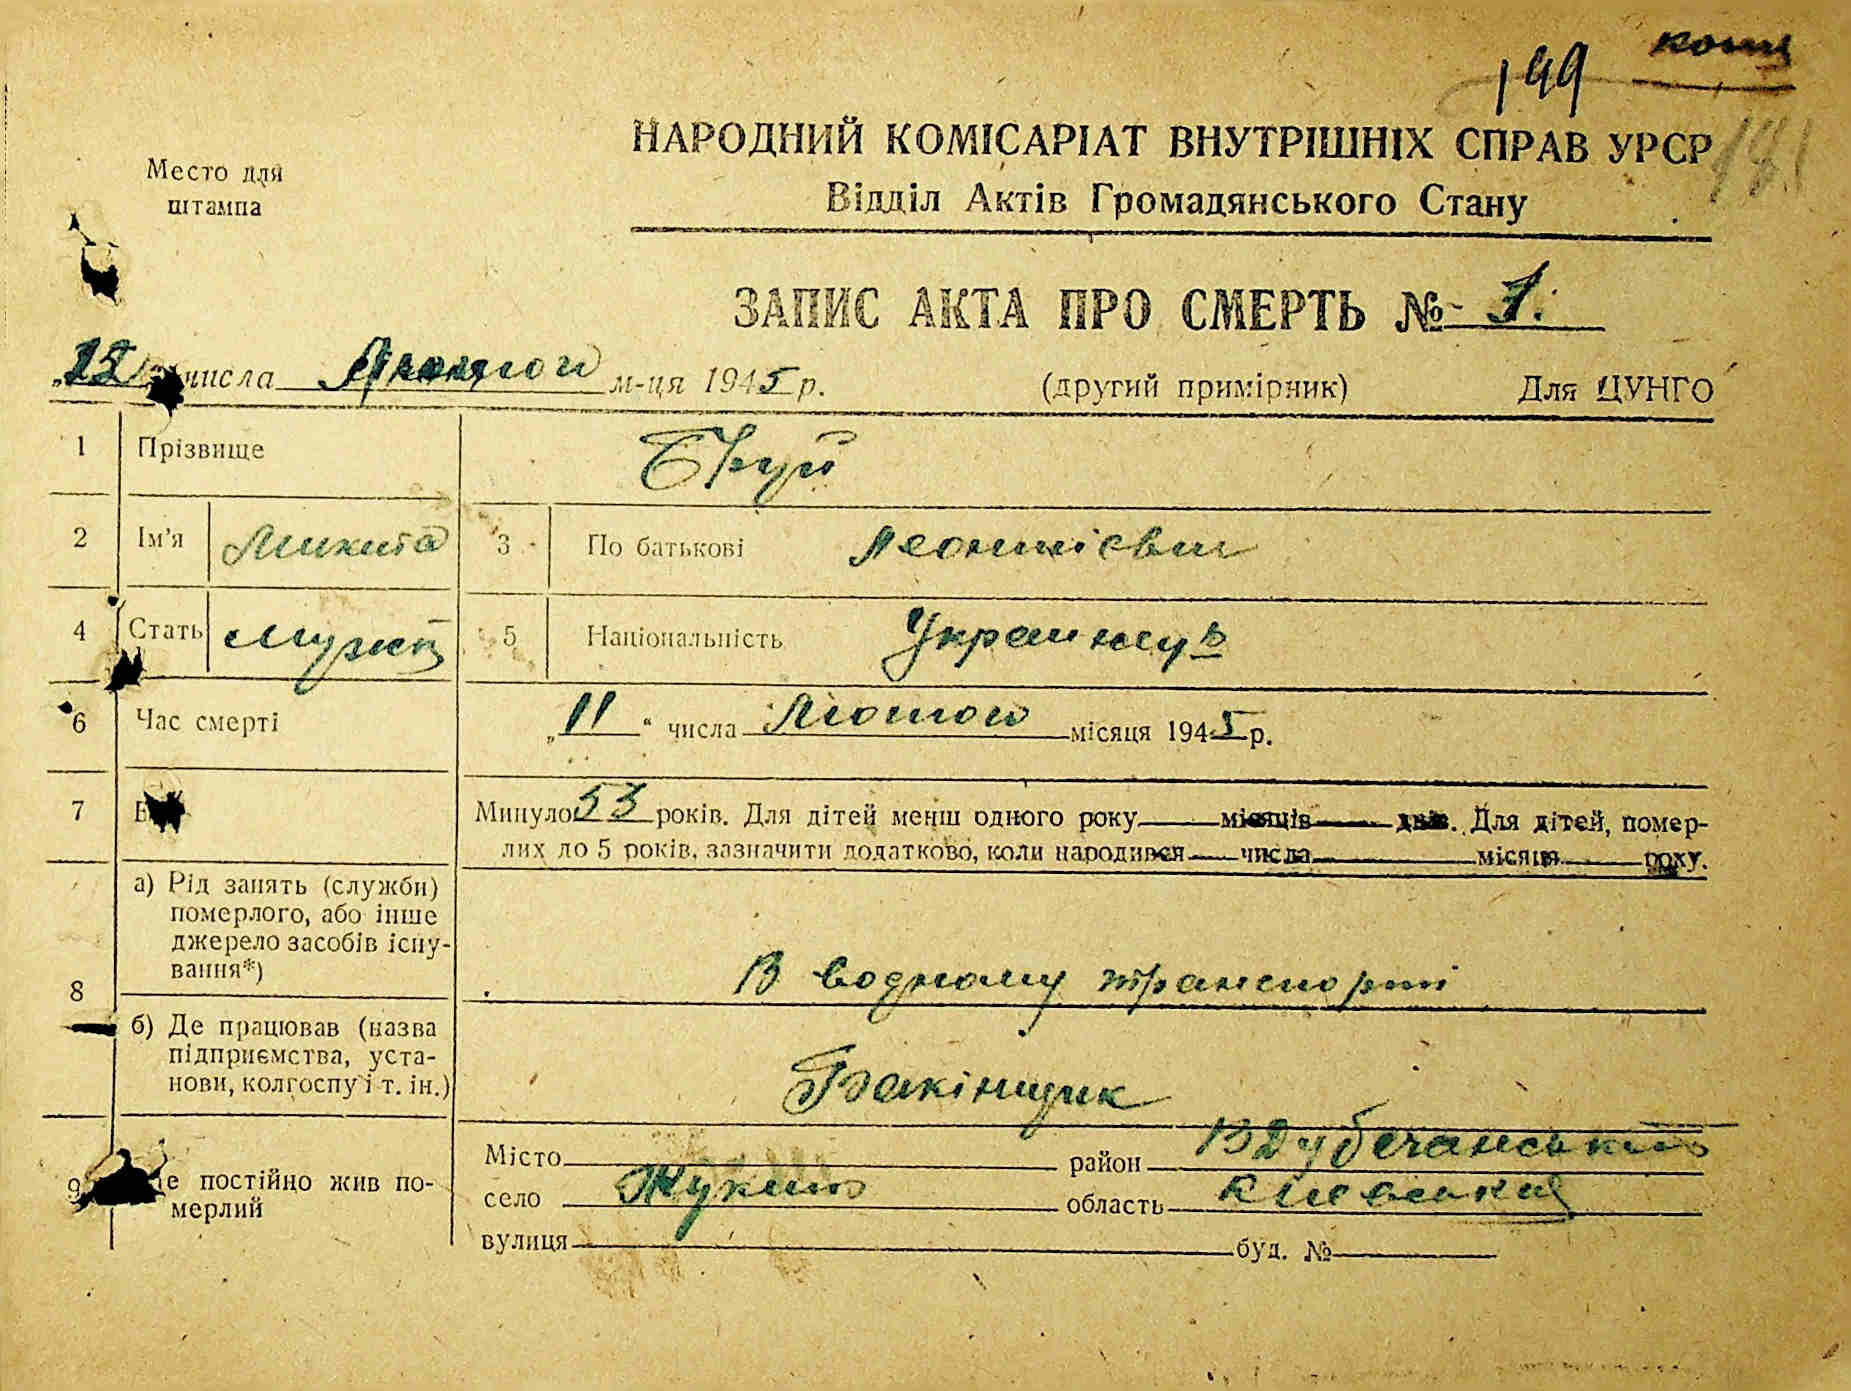 199
НАРОДНИЙ КОМІСАРІАТ ВНУТРІШНІХ СПРАВ УРСР
Место для
штампа
Відділ Актів Громадянського Стану
ЗАПИС АКТА ПРО СМЕРТЬ №
числа м-ця 1945 р. (другий примірник) Для ЦУНГО
1 Прізвище
2 Ім'я Микита 3 По батькові
4 Стать 5 Національність Українець
6 Час смерті „11“ числа Лютого місяця 1945 р.
7 Минуло 53 років. Для дітей менш одного року місяців днів. Для дітей, помер-
лих до 5 років, зазначити додатково, коли народився числа місяця року.
8 а) Рід занять (служби)
померлого, або інше
джерело засобів існу-
вання*)
В водному транспорті
б) Де працював (назва
підприємства, уста-
нови, колгоспу і т. ін.)
Бакінщик
9 постійно жив по-
мерлий
Місто район В Дубечанський
село Жукин область Киевская
вулиця буд. №